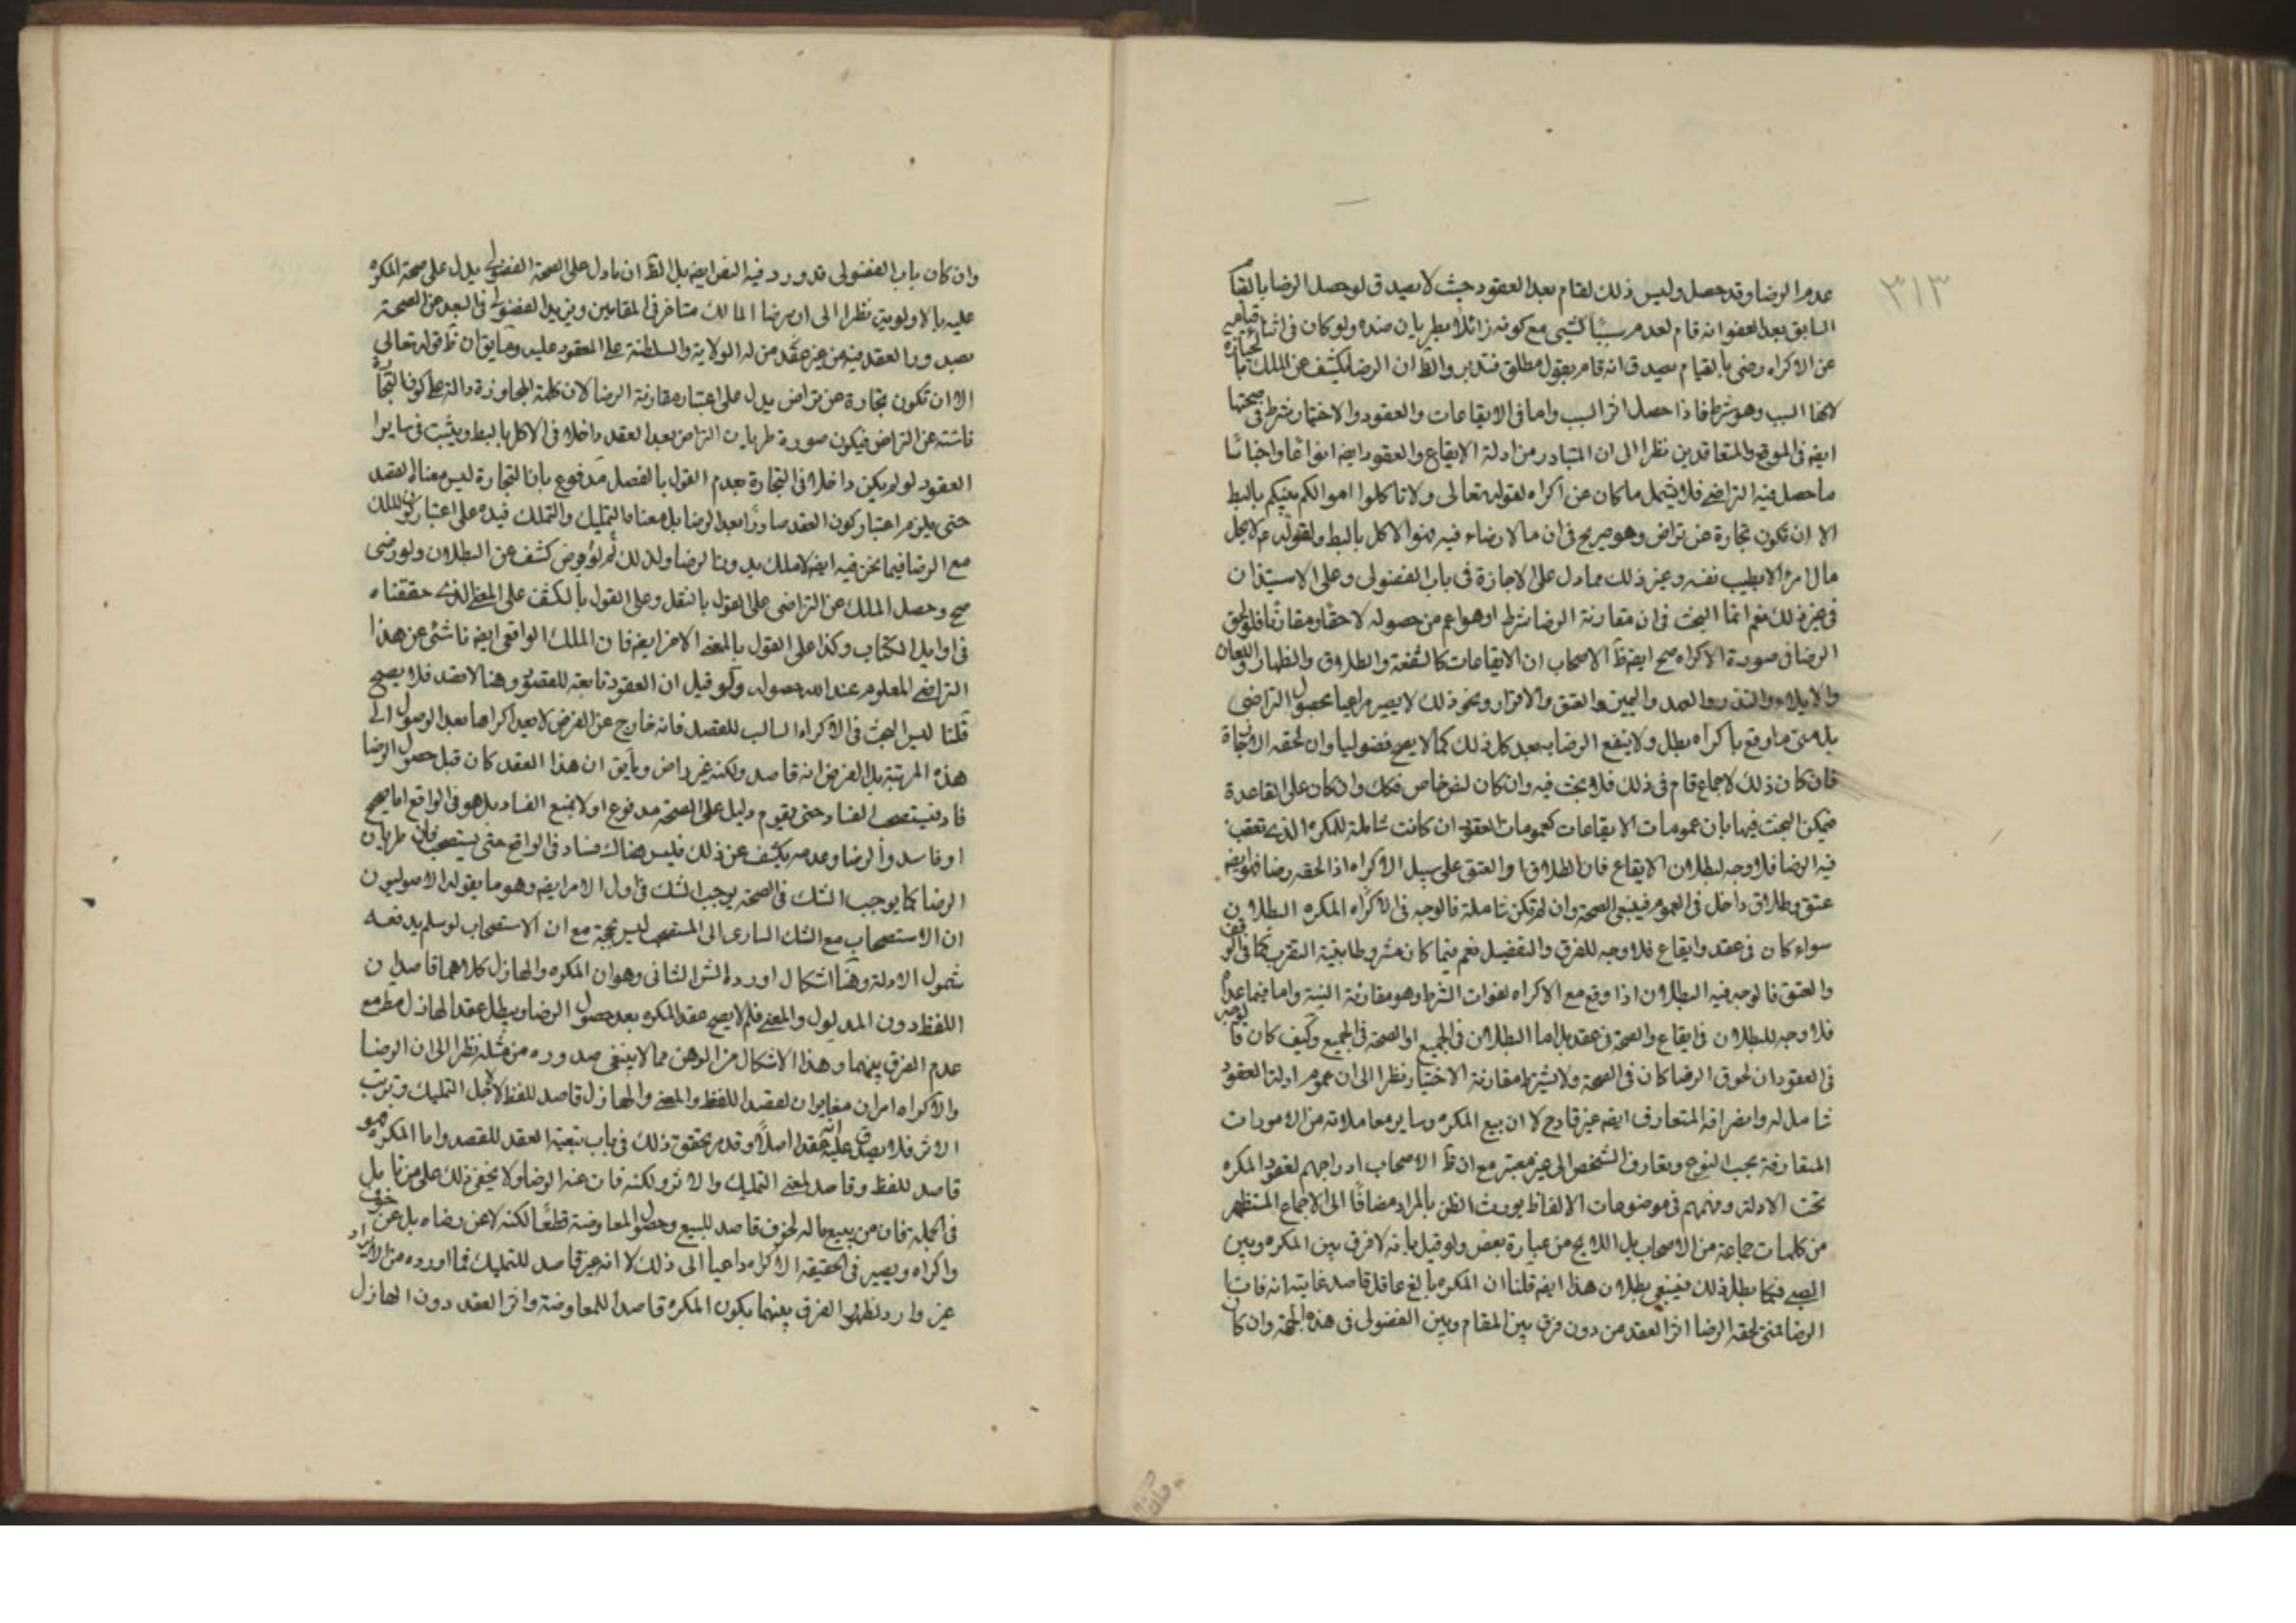 ٣١٣
عدم الرضا وقد حصل وليس ذلك لقام بعد العقود حيث لا يصدق لو حصل الرضا بالقيا
السابق بعد العقود انه قام لعدم سببا كشيى مع كونه زائلا بطريان ضده ولو كان فى اثناء قيامه
عن الاكراه رضى بالقيام يصدق انه قام بقول مطلق فتدبر والظ ان الرضا يكشف عن الملك بالاجازة
لا السبب وهو شرط فاذا حصل اثر السبب واما فى الايقاعات والعقود والاختيار شرط فى صحتها
ايضه فى الموقع والمتعاقدين نظرا الى ان المتبادر من ادلة الايقاع والعقود ايضه
ما حصل فيه التراضى فلا يشمل ما كان عن اكراه لقوله تعالى ولا تاكلوا اموالكم بينكم بالبط
الا ان تكون تجارة عن تراض وهو صريح فى ان ما لا رضاء فيه هو الاكل بالبط ولقوله م لا يحل
مال امرء الا بطيب نفسه وغير ذلك مما دل على الاجازة فى باب الفضولى وعلى الاستيذان
فى غير ذلك نعم انما البحث فى ان مقارنة الرضا شرط او هو اعم من حصوله لاحقا ومقارنا فلو لحق
الرضا فى صورة الاكراه صح ايضه ظ الاصحاب ان الايقاعات كالشفعة والطلاق والظهار واللعان
والايلاء والنذر والعهد واليمين والعتق والاقرار ونحو ذلك لا يصير مراعيا بحصول التراضى
بل متى ما وقع باكراه بطل ولا ينفع الرضا به بعد كل ذلك كما لا يصح فضوليا وان لحقه الاجازة
فان كان ذلك لاجماع قام فى ذلك فلا بحث فيه وان كان لنص خاص فكك وان كان على القاعدة
فيمكن البحث فيها بان عمومات الايقاعات كعمومات العقود ان كانت شاملة للمكره الذى تعقب
فيه الرضا فلا وجه لبطلان الايقاع فان الطلاق او العتق على سبيل الاكراه اذا لحقه رضا فهو ايضه
عتق وطلاق داخل فى العموم فينبغى الصحة وان لم تكن شاملة فالوجه فى الاكراه المكره البطلان
سواء كان فى عقد وايقاع فلا وجه للفرق والتفضيل نعم فيما كان مشروطا بنية التقرب كما فى الوقف
والعتق فالوجه فيه البطلان اذا وقع مع الاكراه لفوات الشرط وهو مقارنة النية واما فيما عداه
فلا وجه للبطلان فى ايقاع والصحة فى عقد بل اما البطلان فى الجميع او الصحة فى الجميع وكيف كان فالوجه
فى العقود ان لحوق الرضا كان فى الصحة ولا يشترط مقارنة الاختيار نظرا الى ان عموم ادلة العقود
شامل له وانصرافه المتعارف ايضه غير قادح لان بيع المكره وساير معاملاته من الامورات
المتعارفة بحسب النوع وتعارف الشخص الى غير معتبر مع ان ظ الاصحاب ادراجهم لعقود المكره
تحت الادلة وفهمهم فى موضوعات الالفاظ يورث الظن بالمراد مضافا الى الاجماع المستظهر
من كلمات جماعة من الاصحاب بل اللايح من عبارة بعض ولو قيل بانه لا فرق بين المكره وبين
الصبى فكما بطل ذلك فينبغى بطلان هذا ايضه قلنا ان المكره بالغ عاقل قاصد غايته انه فات
الرضا فمتى لحقه الرضا اثر العقد من دون فرق بين المقام وبين الفضولى فى هذه الجهة وان كان
وان كان باب الفضولى قد ورد فيه النص ايضه بل الظ ان ما دل على الصحة الفضولى يدل على صحة المكره
عليه بالاولوية نظرا الى ان رضا المالك متاخر فى المقامين ويزيد الفضولى فى البعد عن الصحة
بصدور العقد فيه من غير عقد من له الولاية والسلطنة على المعقود عليه وما يق ان ظ قوله تعالى
الا ان تكون تجارة عن تراض يدل على اعتبار مقارنة الرضا لان كلمة المجاوزة دالة على كون التجارة
ناشئة عن التراض فيكون صورة طريان التراض بعد العقد داخلا فى الاكل بالبط ويثبت فى ساير
العقود لو لم يكن داخلا فى التجارة بعدم القول بالفصل مدفوع بان التجارة ليس معناه العقد
حتى يلزم اعتبار كون العقد صادرا بعد الرضا بل معناه التمليك والتملك فيدل على اعتبار كون الملك
مع الرضا فيما نحن فيه ايضه لا ملك بدون الرضا ولذلك لو لم يرض كشف عن البطلان ولو رضى
صح وحصل الملك عن التراضى على القول بالنقل وعلى القول بالكشف على المعنى الذى حققناه
فى اوايل الكتاب وكذا على القول بالمعنى الاخر ايضه فان الملك الواقعى ايضه ناشئى عن هذا
التراضى المعلوم عند الله حصوله ولو قيل ان العقود تابعة للقصود وهنا لا قصد فلا يصح
قلنا ليس البحث فى الاكراه السالب للقصد فانه خارج عن الفرض لا يعد اكراها بعد الوصول الى
هذه المرتبة بل الفرض انه قاصد ولكنه غير راض وما يق ان هذا العقد كان قبل حصول الرضا
فاسد فيستصحب الفساد حتى يقوم دليل على الصحة مدفوع اولا بمنع الفساد بل هو فى الواقع اما صحيح
او فاسد والرضا وعدمه يكشف عن ذلك فليس هناك فساد فى الواقع حتى يستصحب فان طريان
الرضا كما يوجب الشك فى الصحة يوجب الشك فى اول الامر ايضه وهو ما يقوله الاصوليون
ان الاستصحاب مع الشك السارى الى المستصحب ليس بحجة مع ان الاستصحاب لو سلم يدفعه
شمول الادلة وهنا اشكال اورده الش الثانى وهو ان المكره والهازل كلاهما قاصدان
اللفظ دون المدلول والمعنى فلم لا يصح عقد المكره بعد حصول الرضا ويبطل عقد الهازل مط مع
عدم الفرق بينهما وهذا الاشكال من الوهن مما لا ينبغى صدوره من مثله نظرا الى ان الرضا
والاكراه امران مغايران لقصد اللفظ والمعنى والهازل قاصد للفظ لا لاجل التمليك وترتب
الاثر فلا يصدق عليه انه عقد اصلا وقد مر تحقق ذلك فى باب تبعية العقد للقصد واما المكره فهو
قاصد للفظ وقاصد لمعنى التمليك والاثر ولكنه فات عنه الرضا ولا يخفى ذلك على من تامل
فى الجملة فان من يبيع ماله لخوف قاصد للبيع وحصول المعاوضة قطعا لكنه لا عن رضاه بل عن خوف
واكراه ويصير فى الحقيقة الاكراه داعيا الى ذلك لا انه غير قاصد للتمليك فما اورده من الايراد
غير وارد لظهور الفرق بينهما بكون المكره قاصدا للمعاوضة واثر العقد دون الهازل